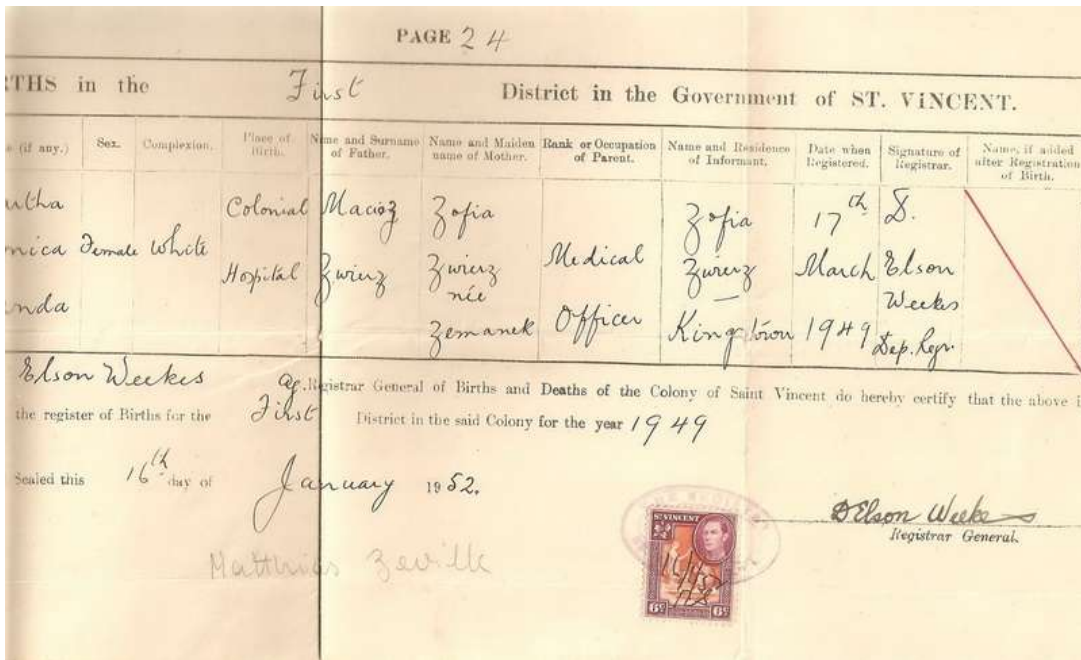 PAGE 24
THS in the First District in the Government of ST. VINCENT.
e (if any.) Sex. Complexion. Place of Birth. Name and Surname of Father. Name and Maiden name of Mother. Rank or Occupation of Parent. Name and Residence of Informant. Date when Registered. Signature of Registrar. Name, if added after Registration of Birth.
Colonial Zofia Zofia 17th D.
nica Female White Hospital Zwierz Zwierz Medical Zwierz March Elson
née Weekes
anda Zemanek Officer Kingstown 1949 Dep. Regr.
Elson Weekes ag. Registrar General of Births and Deaths of the Colony of Saint Vincent do hereby certify that the above i
the register of Births for the First District in the said Colony for the year 1949
Sealed this 16th day of January 1952.
D Elson Weekes
Registrar General.
Matthias
ST VINCENT
6D 6D